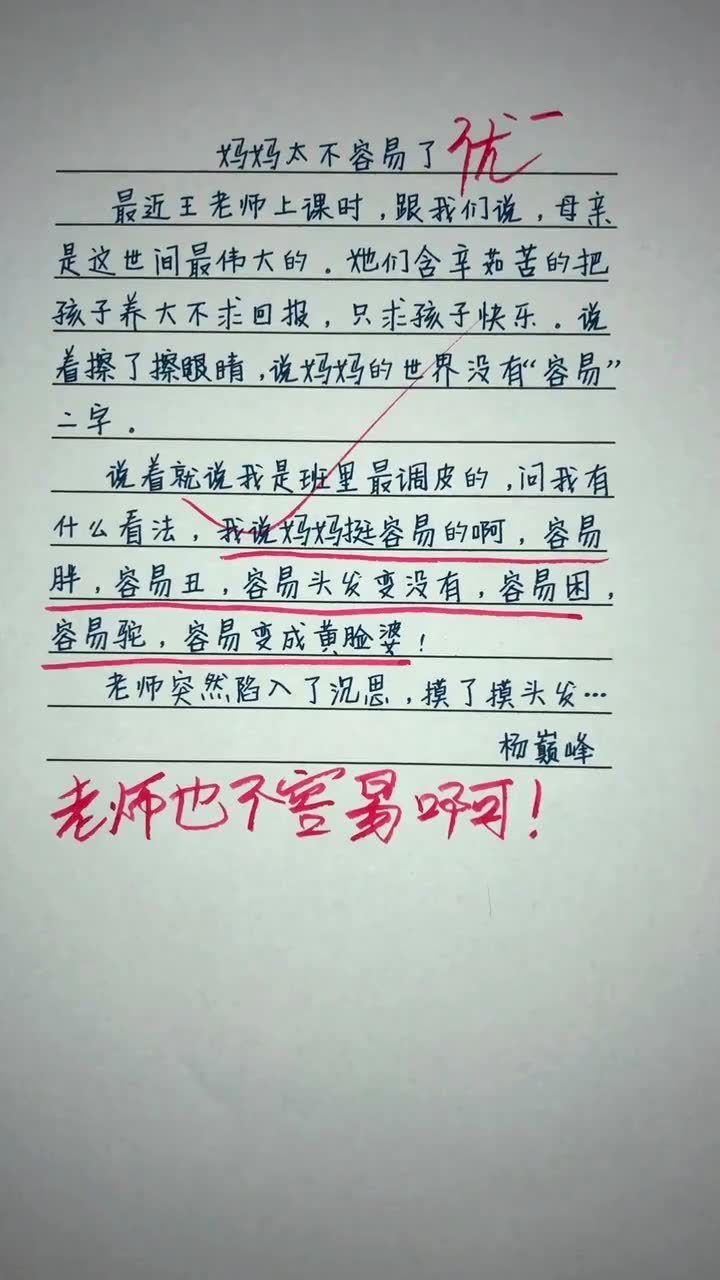 妈妈太不容易了 优-
最近王老师上课时，跟我们说，母亲
是这世间最伟大的。她们含辛茹苦的把
孩子养大不求回报，只求孩子快乐。说
着擦了擦眼睛，说妈妈的世界没有“容易”
二字。
说着就说我是班里最调皮的，问我有
什么看法，我说妈妈挺容易的啊，容易
胖，容易丑，容易头发变没有，容易困，
容易驼，容易变成黄脸婆！
老师突然陷入了沉思，摸了摸头发…
杨巅峰
老师也不容易啊！